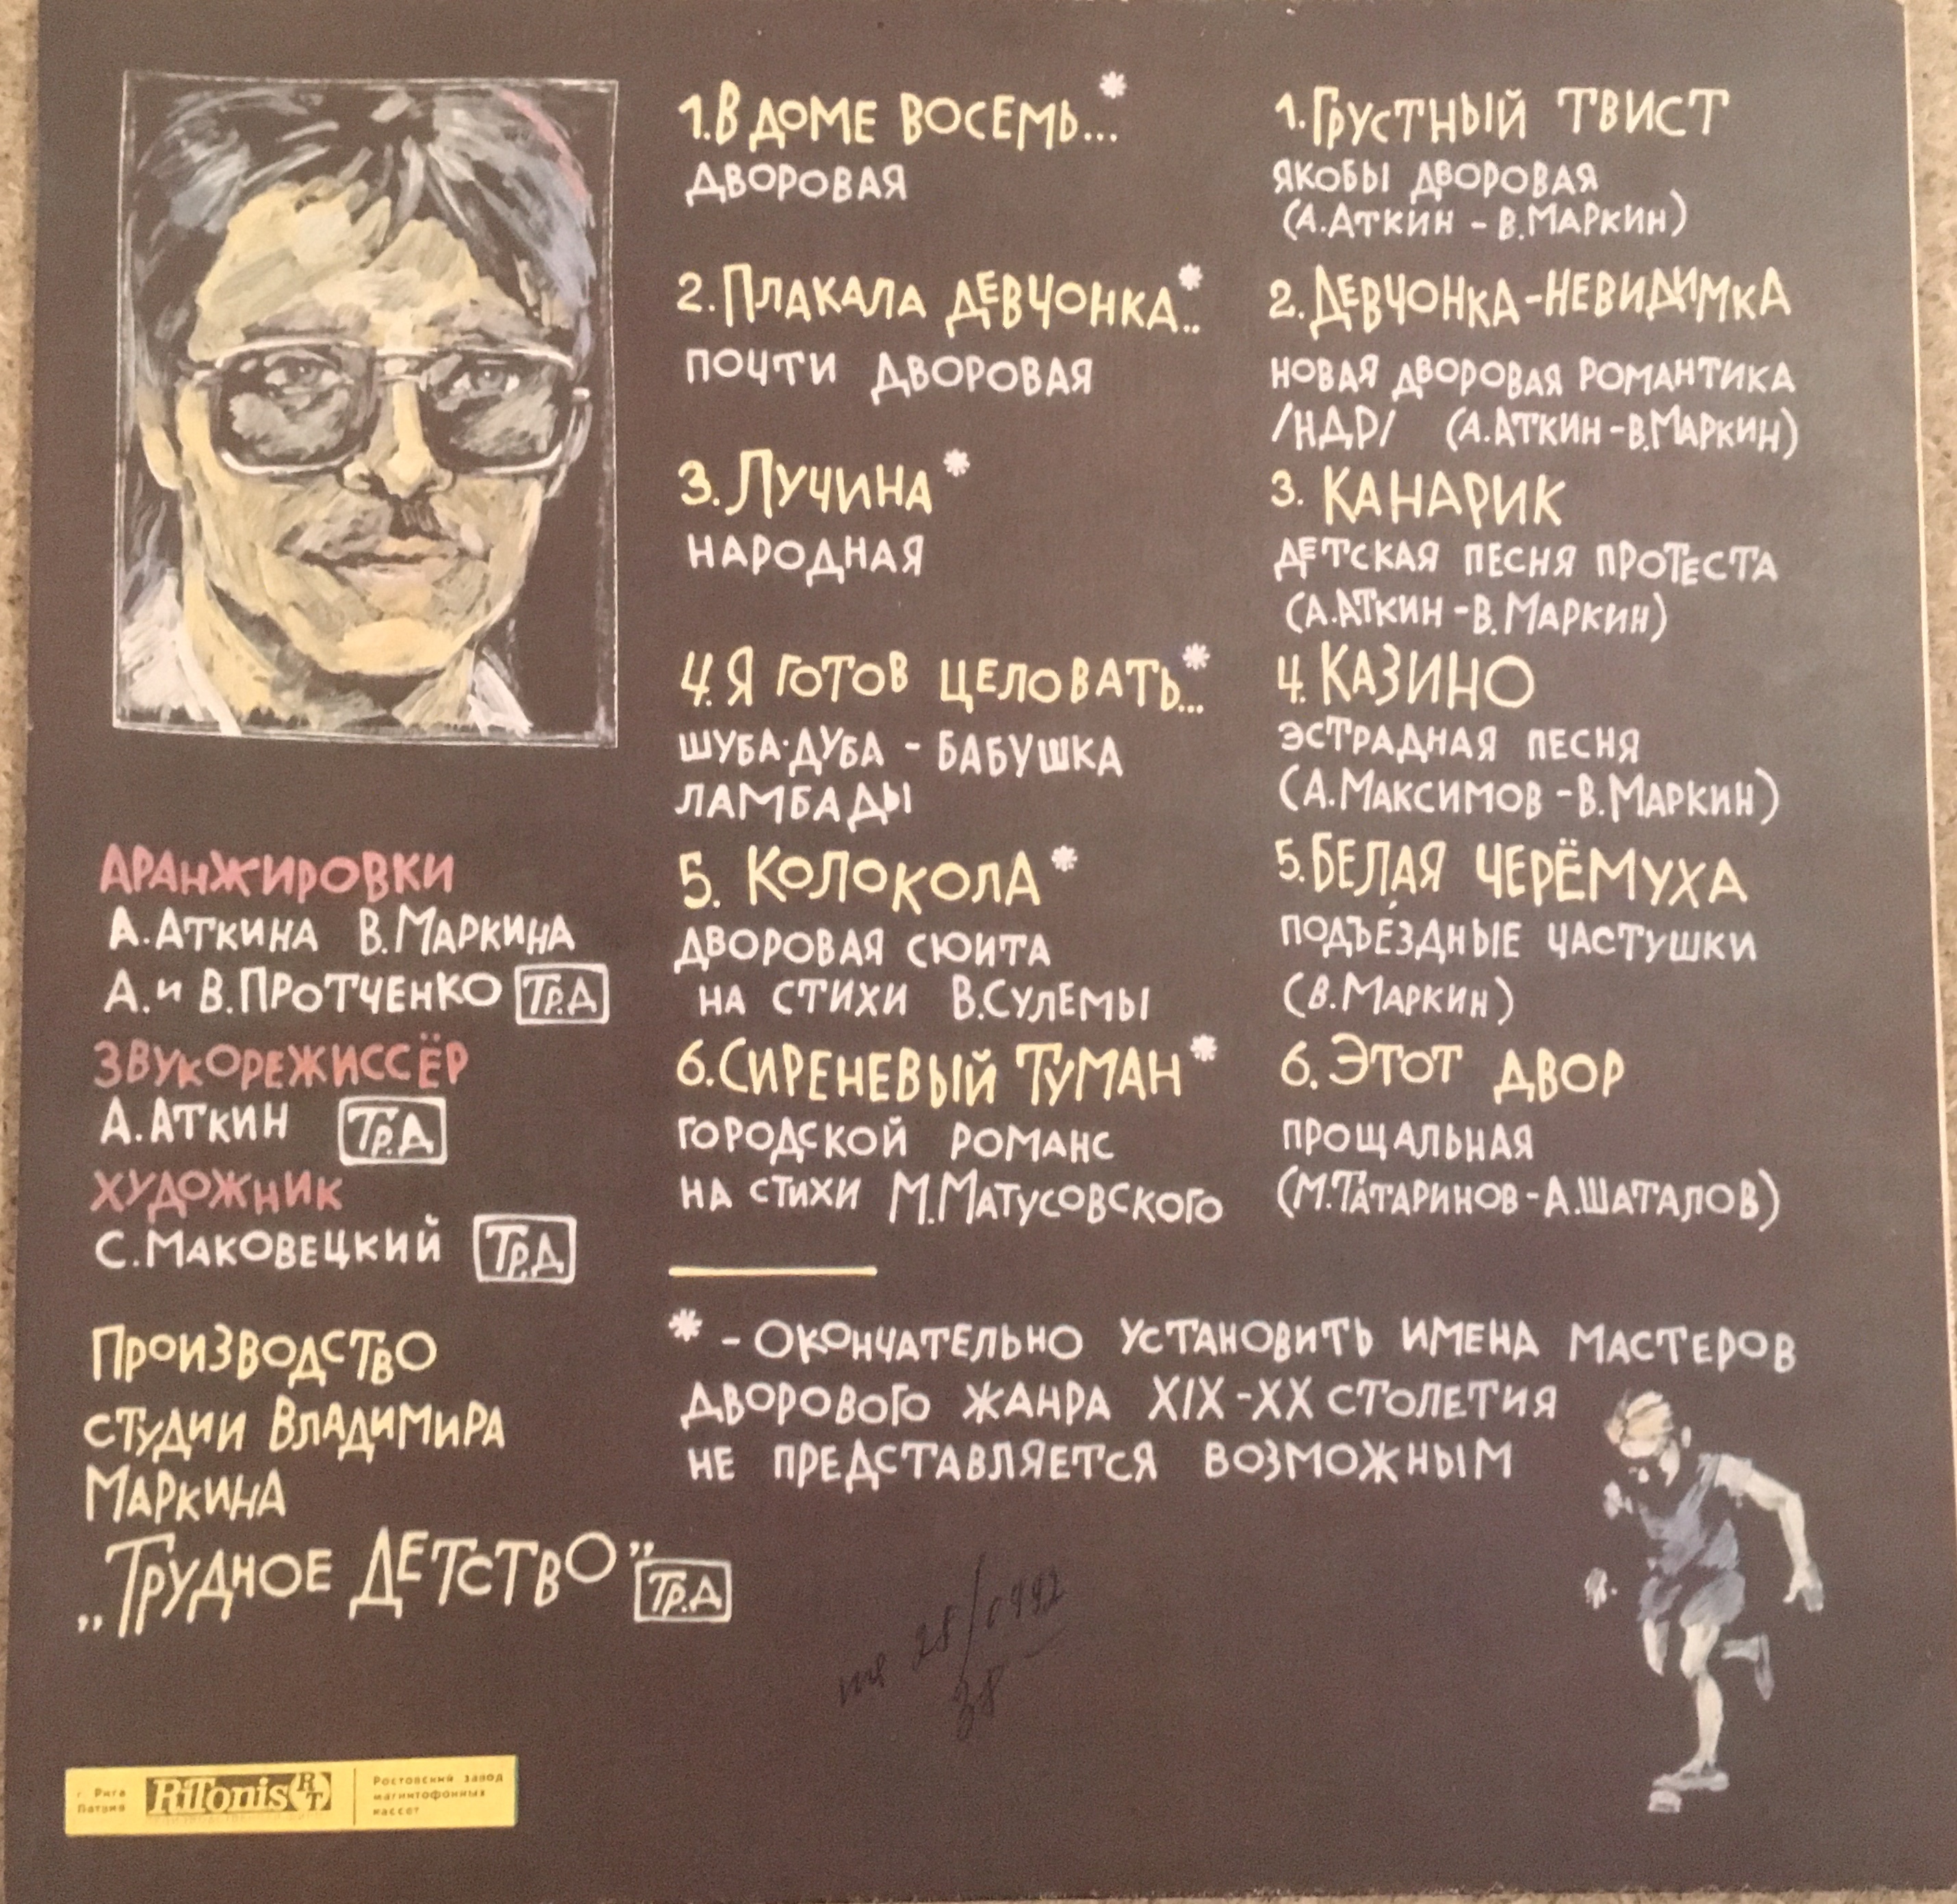 1. В ДОМЕ ВОСЕМЬ...*
ДВОРОВАЯ
2. ПЛАКАЛА ДЕВЧОНКА..*
ПОЧТИ ДВОРОВАЯ
3. ЛУЧИНА*
НАРОДНАЯ
4. Я ГОТОВ ЦЕЛОВАТЬ...*
ШУБА-ДУБА - БАБУШКА
ЛАМБАДЫ
5. КОЛОКОЛА*
ДВОРОВАЯ СЮИТА
НА СТИХИ В.СУЛЕМЫ
6. СИРЕНЕВЫЙ ТУМАН*
ГОРОДСКОЙ РОМАНС
НА СТИХИ М.МАТУСОВСКОГО
1. ГРУСТНЫЙ ТВИСТ
ЯКОБЫ ДВОРОВАЯ
(А.АТКИН - В.МАРКИН)
2. ДЕВЧОНКА-НЕВИДИМКА
НОВАЯ ДВОРОВАЯ РОМАНТИКА
/НДР/ (А.АТКИН-В.МАРКИН)
3. КАНАРИК
ДЕТСКАЯ ПЕСНЯ ПРОТЕСТА
(А.АТКИН-В.МАРКИН)
4. КАЗИНО
ЭСТРАДНАЯ ПЕСНЯ
(А.МАКСИМОВ-В.МАРКИН)
5. БЕЛАЯ ЧЕРЁМУХА
ПОДЪЕ́ЗДНЫЕ ЧАСТУШКИ
(В.МАРКИН)
6. ЭТОТ ДВОР
ПРОЩАЛЬНАЯ
(М.ТАТАРИНОВ-А.ШАТАЛОВ)
* - ОКОНЧАТЕЛЬНО УСТАНОВИТЬ ИМЕНА МАСТЕРОВ
ДВОРОВОГО ЖАНРА XIX-XX СТОЛЕТИЯ
НЕ ПРЕДСТАВЛЯЕТСЯ ВОЗМОЖНЫМ
АРАНЖИРОВКИ
А.АТКИНА В.МАРКИНА
А. и В.ПРОТЧЕНКО ТР.Д
ЗВУКОРЕЖИССЁР
А.АТКИН ТР.Д
ХУДОЖНИК
С.МАКОВЕЦКИЙ ТР.Д
ПРОИЗВОДСТВО
СТУДИИ ВЛАДИМИРА
МАРКИНА
„ТРУДНОЕ ДЕТСТВО” ТР.Д
г. Рига
Латвия
RiTonis RT
Ростовский завод
магнитофонных
кассет